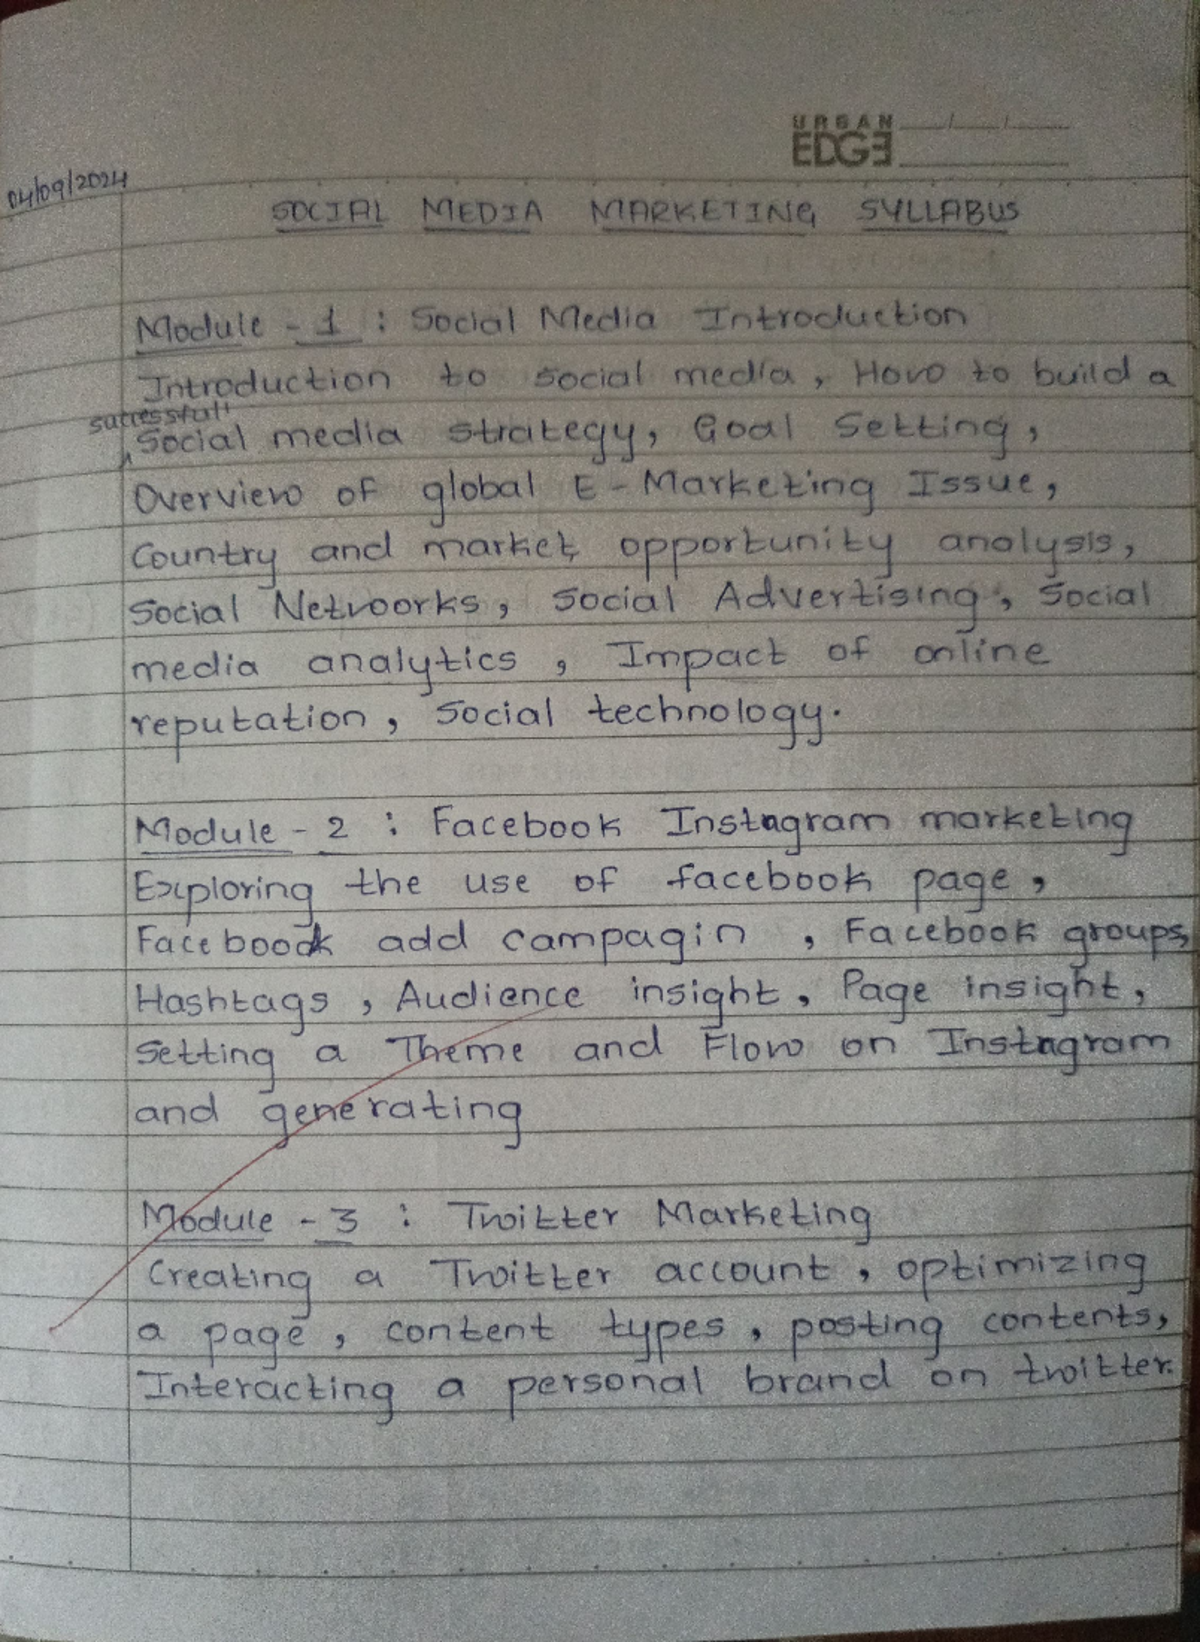 URBAN
EDGE
04/09/2024
SOCIAL MEDIA MARKETING SYLLABUS
Module - 1 : Social Media Introduction
Introduction to social media, How to build a
successful
Social media strategy, Goal Setting,
Overview of global E-Marketing Issue,
Country and market opportunity analysis,
Social Networks, Social Advertising, Social
media analytics, Impact of online
reputation, Social technology.
Module - 2 : Facebook Instagram marketing
Exploring the use of facebook page,
Facebook add campagin, Facebook groups,
Hashtags, Audience insight, Page insight,
Setting a Theme and Flow on Instagram
and generating
Module - 3 : Twitter Marketing
Creating a Twitter account, optimizing
a page, content types, posting contents,
Interacting a personal brand on twitter.